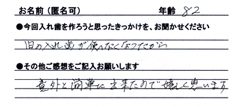 お名前（匿名可）　年齢 82
●今回入れ歯を作ろうと思ったきっかけを、お聞かせください
旧の入れ歯が使いなくなったから
●その他ご感想をご記入お願いします
意外と簡単に出来たので嬉しく思います